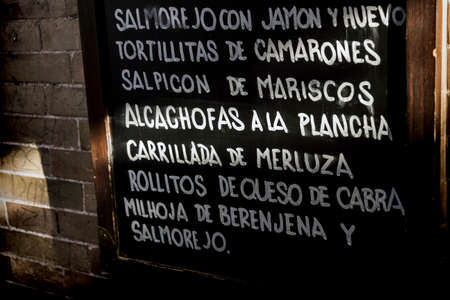 SALMOREJO CON JAMON Y HUEVO
TORTILLITAS DE CAMARONES
SALPICON DE MARISCOS
ALCACHOFAS A LA PLANCHA
CARRILLADA DE MERLUZA
ROLLITOS DE QUESO DE CABRA
MILHOJA DE BERENJENA Y
SALMOREJO.